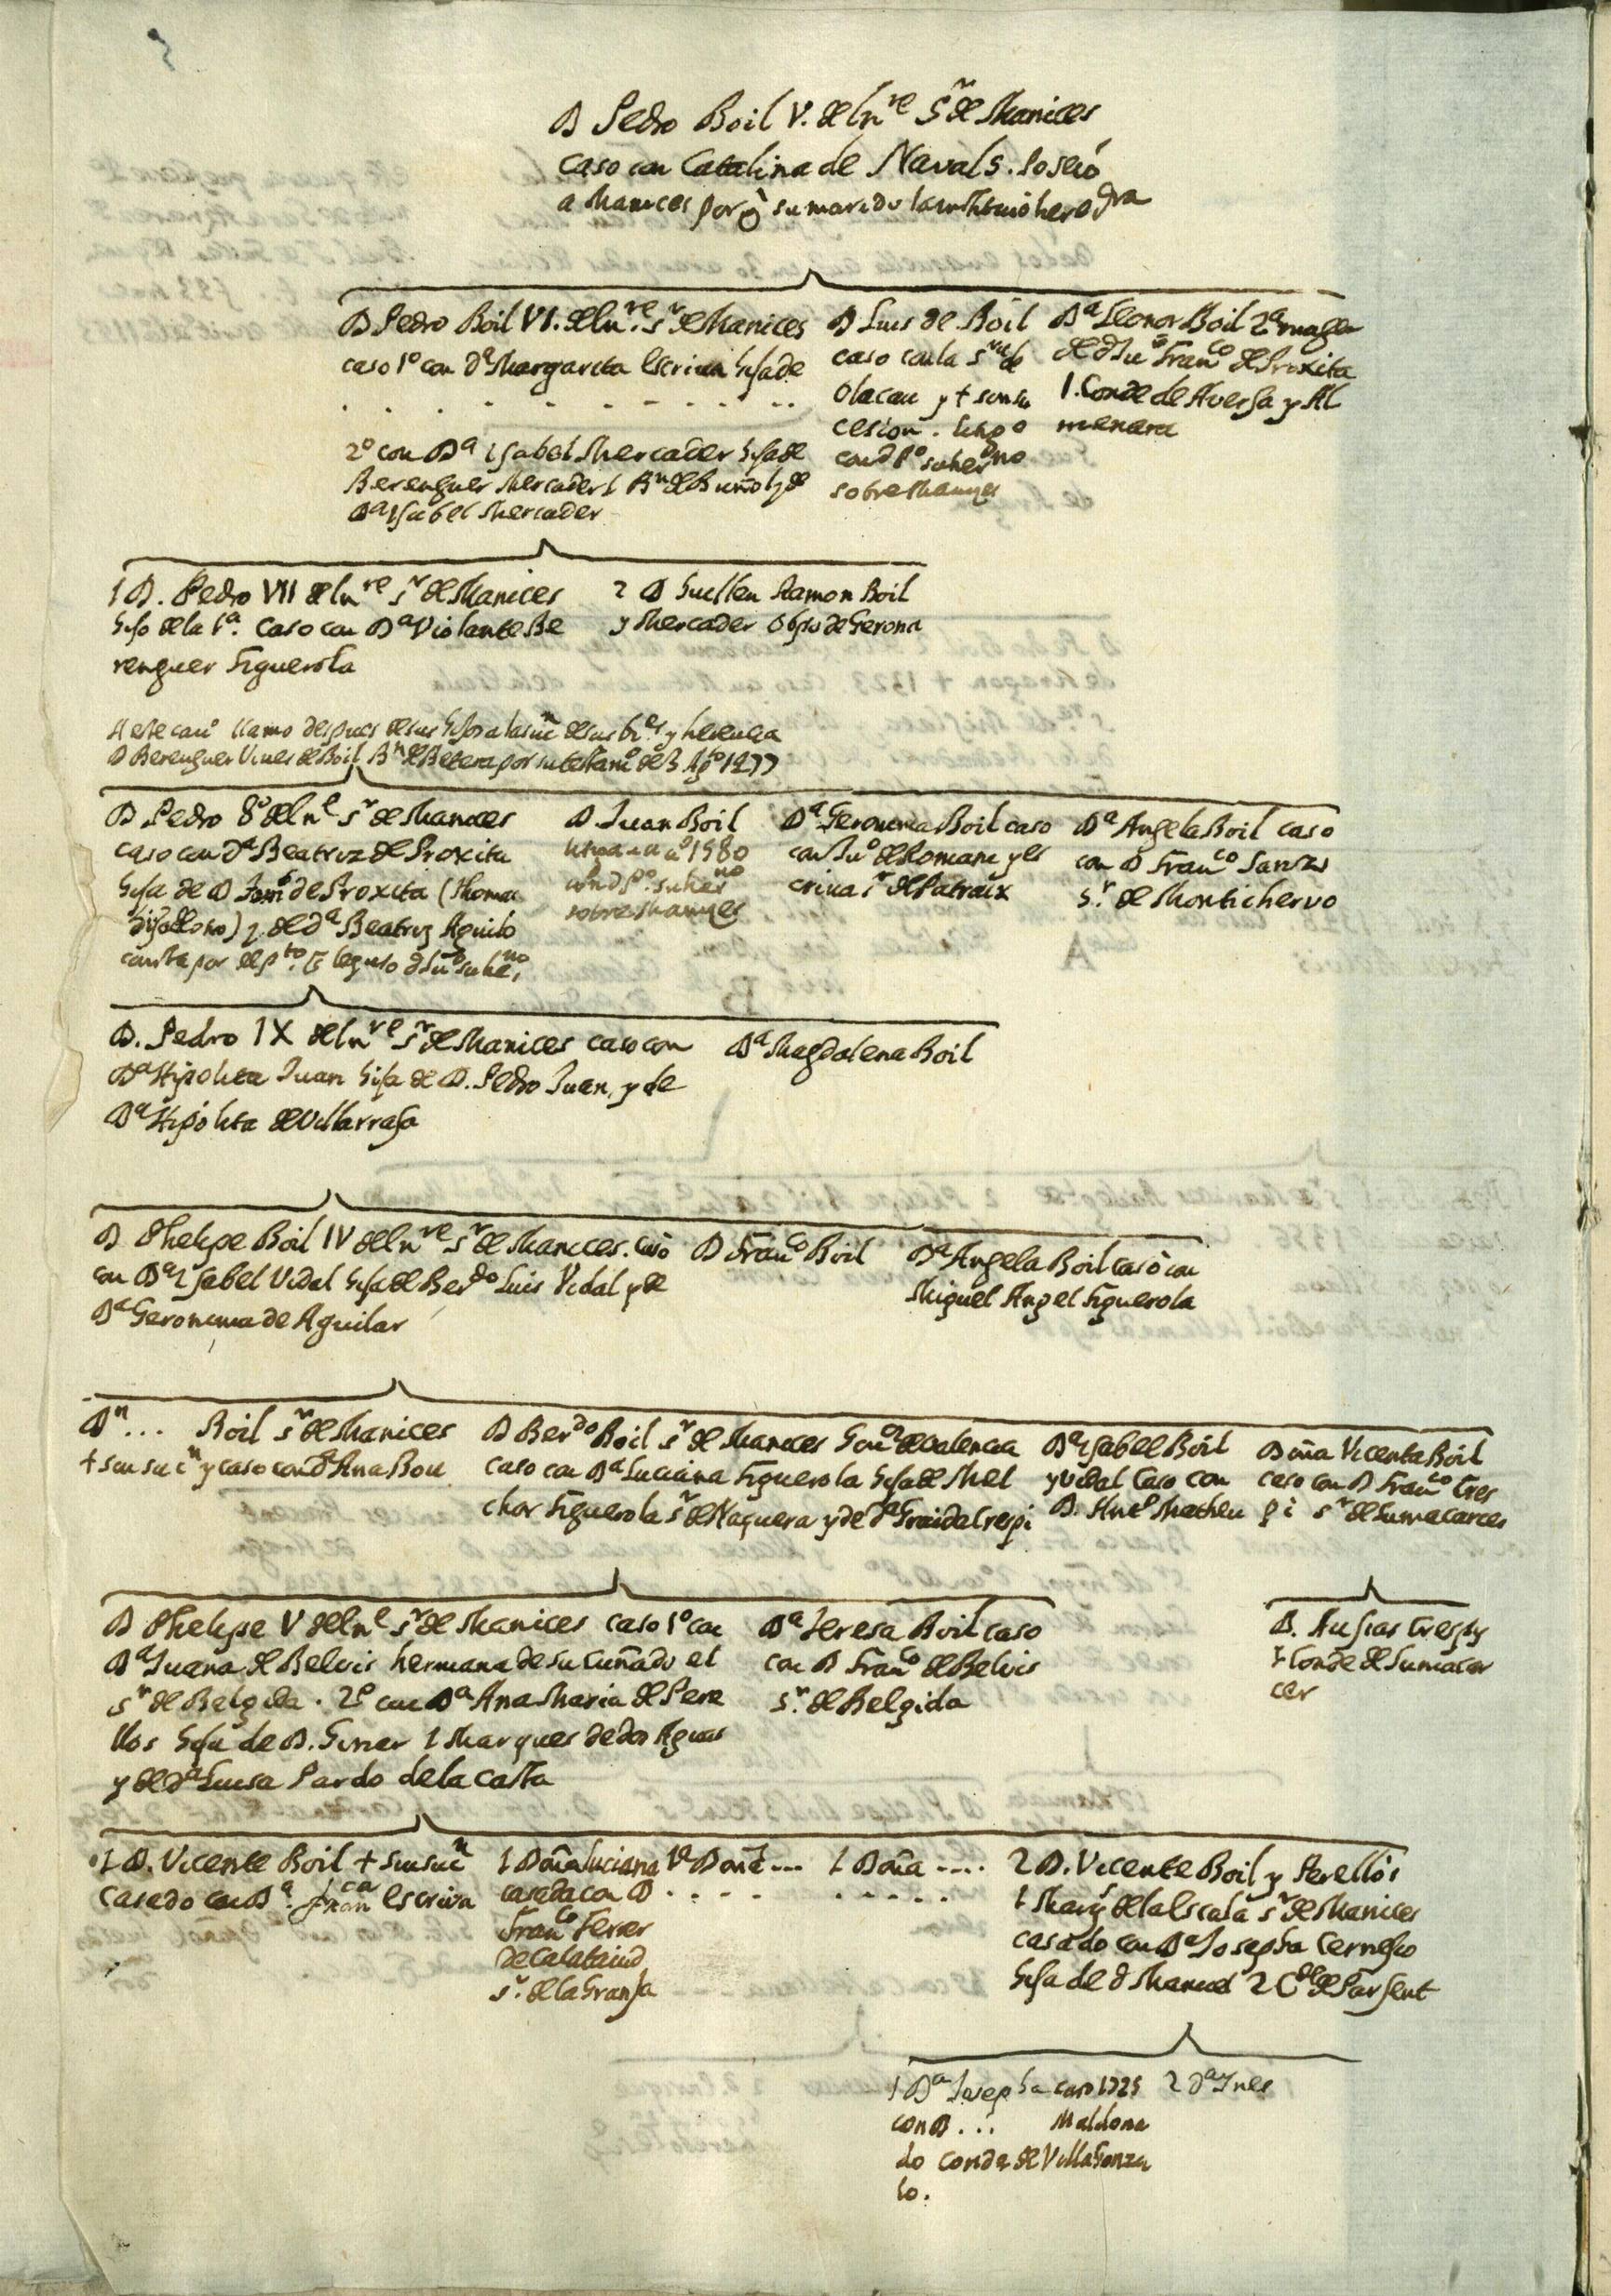 D Pedro Boil V. del nre Sr de Manices
caso con Catalina de Navals. Poseió
a Manices por q̃ su marido la instituió heredra
D Pedro Boil VI. del nre. sr de Manices
caso 1o con Da Margarita Escriva hija de
. . . . . . . . . .
2o con Da Isabel Mercader hija de
Berenguer Mercader 1 Bn de Buñol y de
Da Isabel Mercader
D Luis de Boil
caso con la sra de
Olacau y + sin su
cesion.
con d Po su herno
sobre Manizes
Da Leonor Boil 2a muger
de d Juo Franco de Proxita
1. Conde de Aversa y Al
menara
1 D. Pedro VII del nre sr de Manices
hijo de la 1a. Caso con Da Violante Be
renguer Figuerola
2 D Guillen Ramon Boil
y Mercader Obpo de Gerona
A este caur llamo despues de sus hijos a la sun de sus bies y herencia
D Berenguer Vives de Boil Bn de Betera por su testamo de 3 Agto 1477
D Pedro 8o del ne sr de Manices
caso con da Beatriz de Proxita
hija de D Jomo de Proxita (Thomas
dijo el otro) y de da Beatriz Aguilo
consta por el pto. de d Juo su herno
D Juan Boil
con d Po. su herno
sobre Manyzes
Da Geronima Boil caso
con Juo de Romani y es
criva sr de Patraix
Da Angela Boil caso
con D Franco Sanz
sr. de Montichervo
D. Pedro IX del nre sr de Manices caso con
Da Hipolita Juan hija de D. Pedro Juan, y de
Da Hipólita de Villarrasa
Da Magdalena Boil
D Phelipe Boil IV del nre sr de Manices. Caso
con Da Isabel Vidal hija de Berdo Luis Vidal y de
Da Geronima de Aguilar
D Franco Boil
Da Angela Boil caso con
Miguel Angel Figuerola
Dn . . . Boil sr de Manices
+ sin sucn y caso con da Ana Bou
D Berdo Boil sr de Manices Gour de Valencia
caso con Da Luciana Figuerola hija de Mel
chor Figuerola sr de Naquera y de da Graida Crespi
Da Isabel Boil
y Vidal Caso con
D. Anto Matheu
Doña Vicenta Boil
caso con D Franco Cres
pi sr de Sumacarcer
D Phelipe V del ne sr de Manices caso 1o con
Da Juana de Belvis hermana de su cuñado el
sr de Belgida. 2o con Da Ana Maria de Pere
llos hija de D. Giner 1 Marques de dos Aguas
y de da Luisa Pardo de la Casta
Da Teresa Boil caso
con D Franco de Belvis
sr. de Belgida
D. Ausias Crespi
1 Conde de Sumacar
cer
1 D. Vicente Boil + sin sucn
casado con Da. Franca Escriva
1 Doña Luciana
casada con D
Franco Ferrer
de Calataiud
sr. de la Granja
1a Doña ...
. . . .
1 Doña ....
. . . . .
2 D. Vicente Boil y Perellós
1 Marqs de la Escala sr de Manices
casado con Da Josepha Cernesio
hija de d Manuel 2 Cde de Parsent
1 Da Josepha caso 1725
con D. . . Maldona
do Conde de Villagonza
lo.
2 da Ines